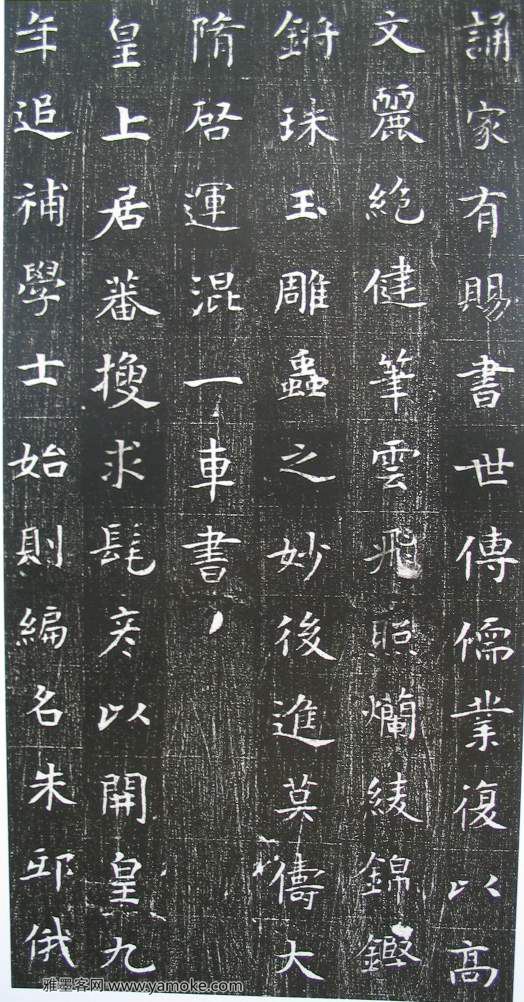 誦家有賜書世傳儒業復以高
文麗絕健筆雲飛照爛綾錦鏗
鏘珠玉雕蟲之妙後進莫儔大
隋啓運混一車書
皇上居蕃搜求髦彥以開皇九
年追補學士始則編名朱邸俄
雅墨客网 www.yamoke.com